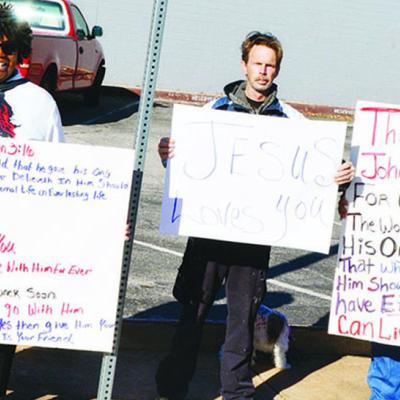 n 3:16
d that he gave his only
r Believeth In Him Should
ernal Life in Everlasting life
You
e With Him For Ever
Soon
go With Him
es then give Him Your
Is Your Friend.
JESUS
Loves You
Th
John
For
The Wo
His On
That Wh
Him Shou
have E
Can Li